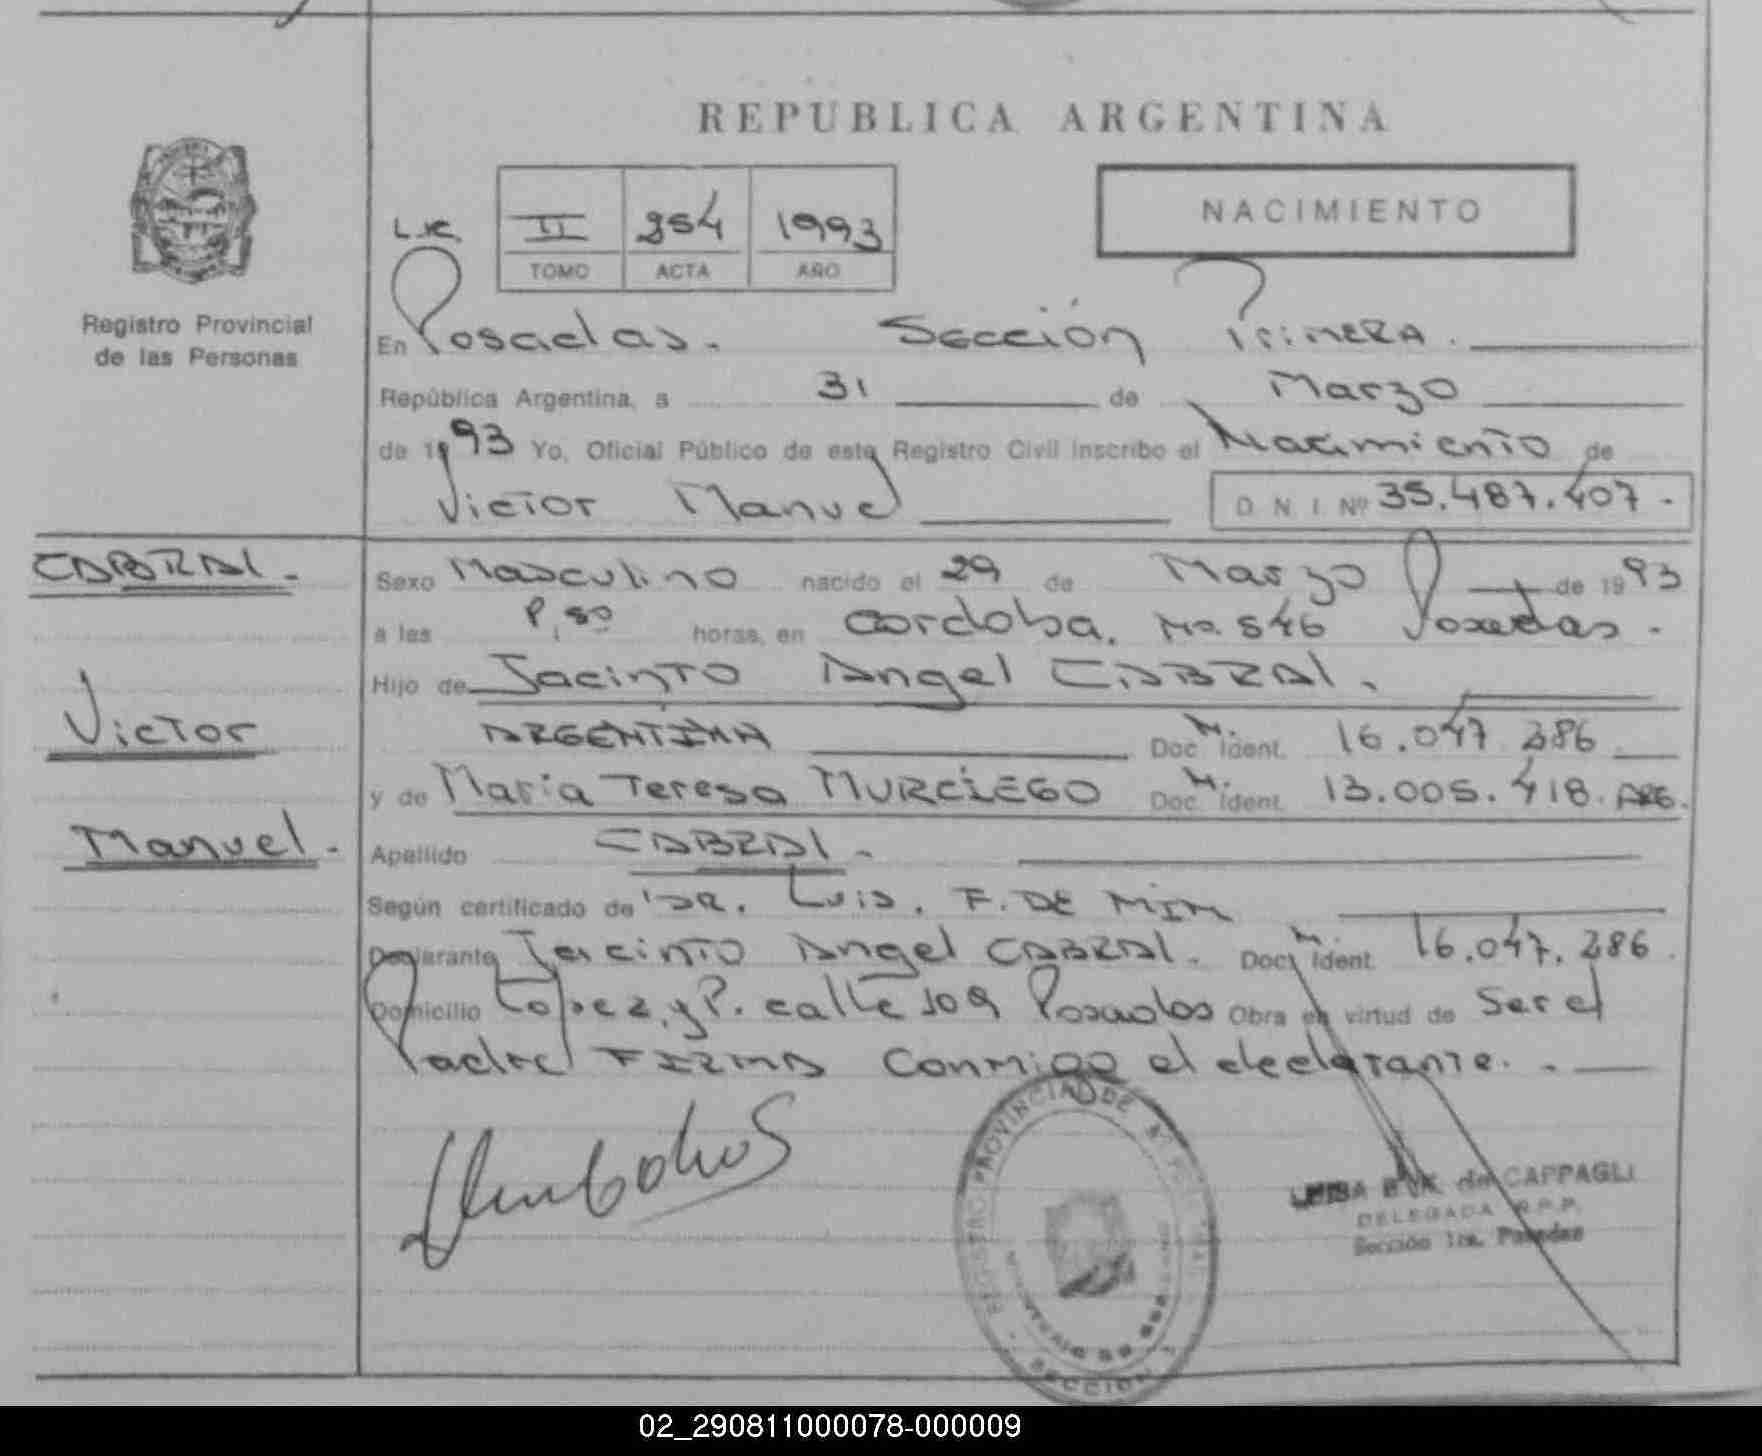 REPUBLICA ARGENTINA
NACIMIENTO
L.C.
II 354 1993
TOMO ACTA AÑO
Registro Provincial
de las Personas
En Posadas. Sección Primera.
República Argentina, a 31 de Marzo
de 1993 Yo, Oficial Público de este Registro Civil inscribo el Nacimiento de
Victor Manuel D. N. I. Nº 35.487.407.
CABRAL.
Sexo Masculino nacido el 29 de Marzo de 1993
a las horas, en Cordoba. No. 546 Posadas.
Hijo de Jacinto Angel CABRAL.
Victor
ARGENTINA Doc. Ident. 16.047.386
y de Maria Teresa MURCIEGO Doc. Ident. 13.005.418. ARG.
Manuel.
Apellido CABRAL.
Según certificado de DR. Luis. F. DE MIM
Declarante Jacinto Angel CABRAL. Doc. Ident. 16.047.386.
Domicilio Lopez y P. calle 109 Posadas Obra en virtud de Ser el
Padre FIRMA Conmigo el declarante.
REGISTRO PROVINCIAL DE
SECCION
LUISA de CAPPAGLI
DELEGADA R.P.P.
Sección 1ra. Posadas
02_290811000078-000009